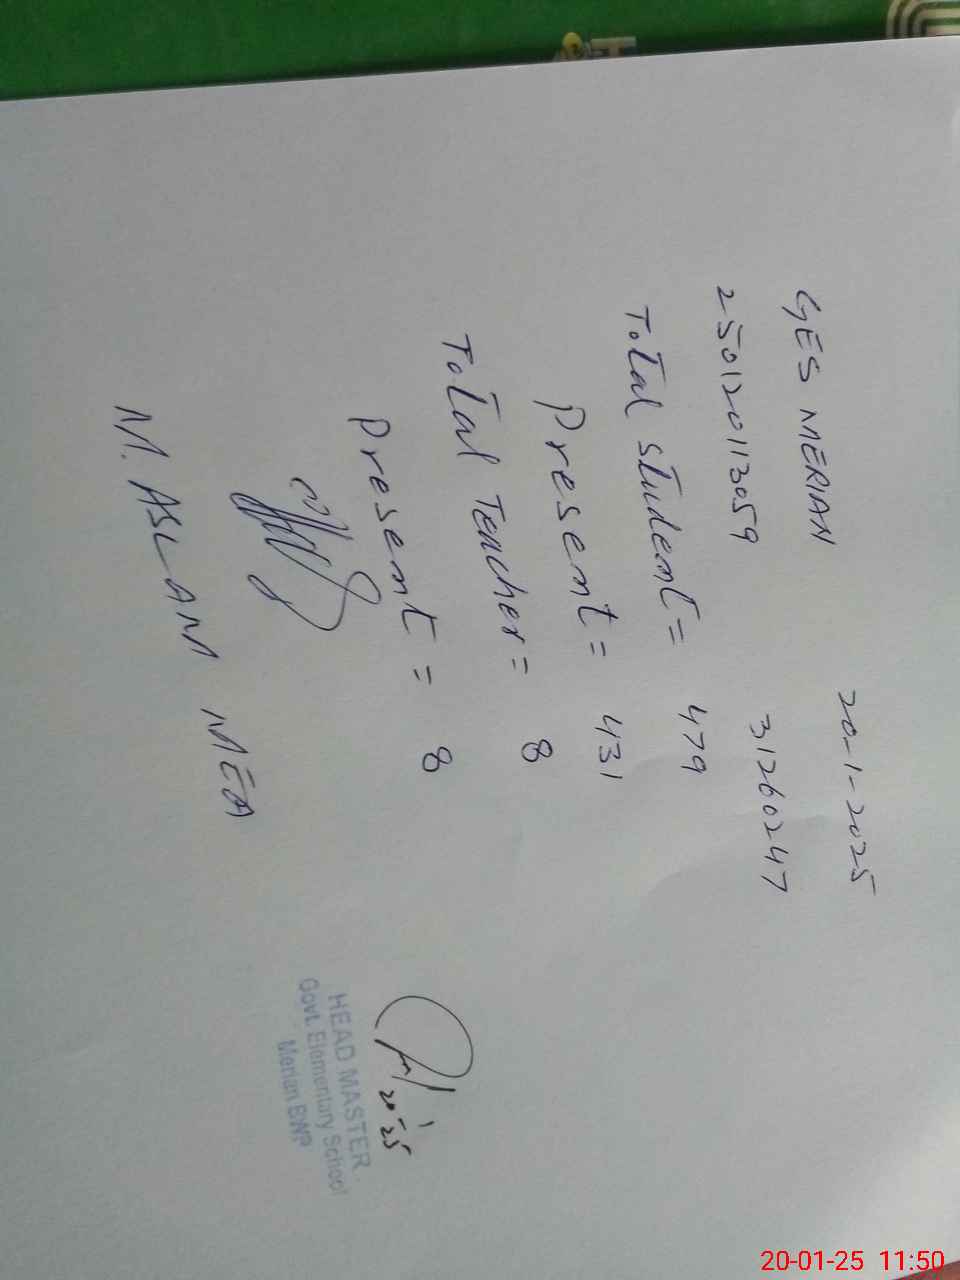 GES MERIAN 20-1-2025
2501201113059 31260247
Total student = 479
Present = 431
Total Teacher = 8
Present = 8
M. ASLAM MEA
20-1-25
HEAD MASTER
Govt. Elementary School
Merian BWP
20-01-25 11:50